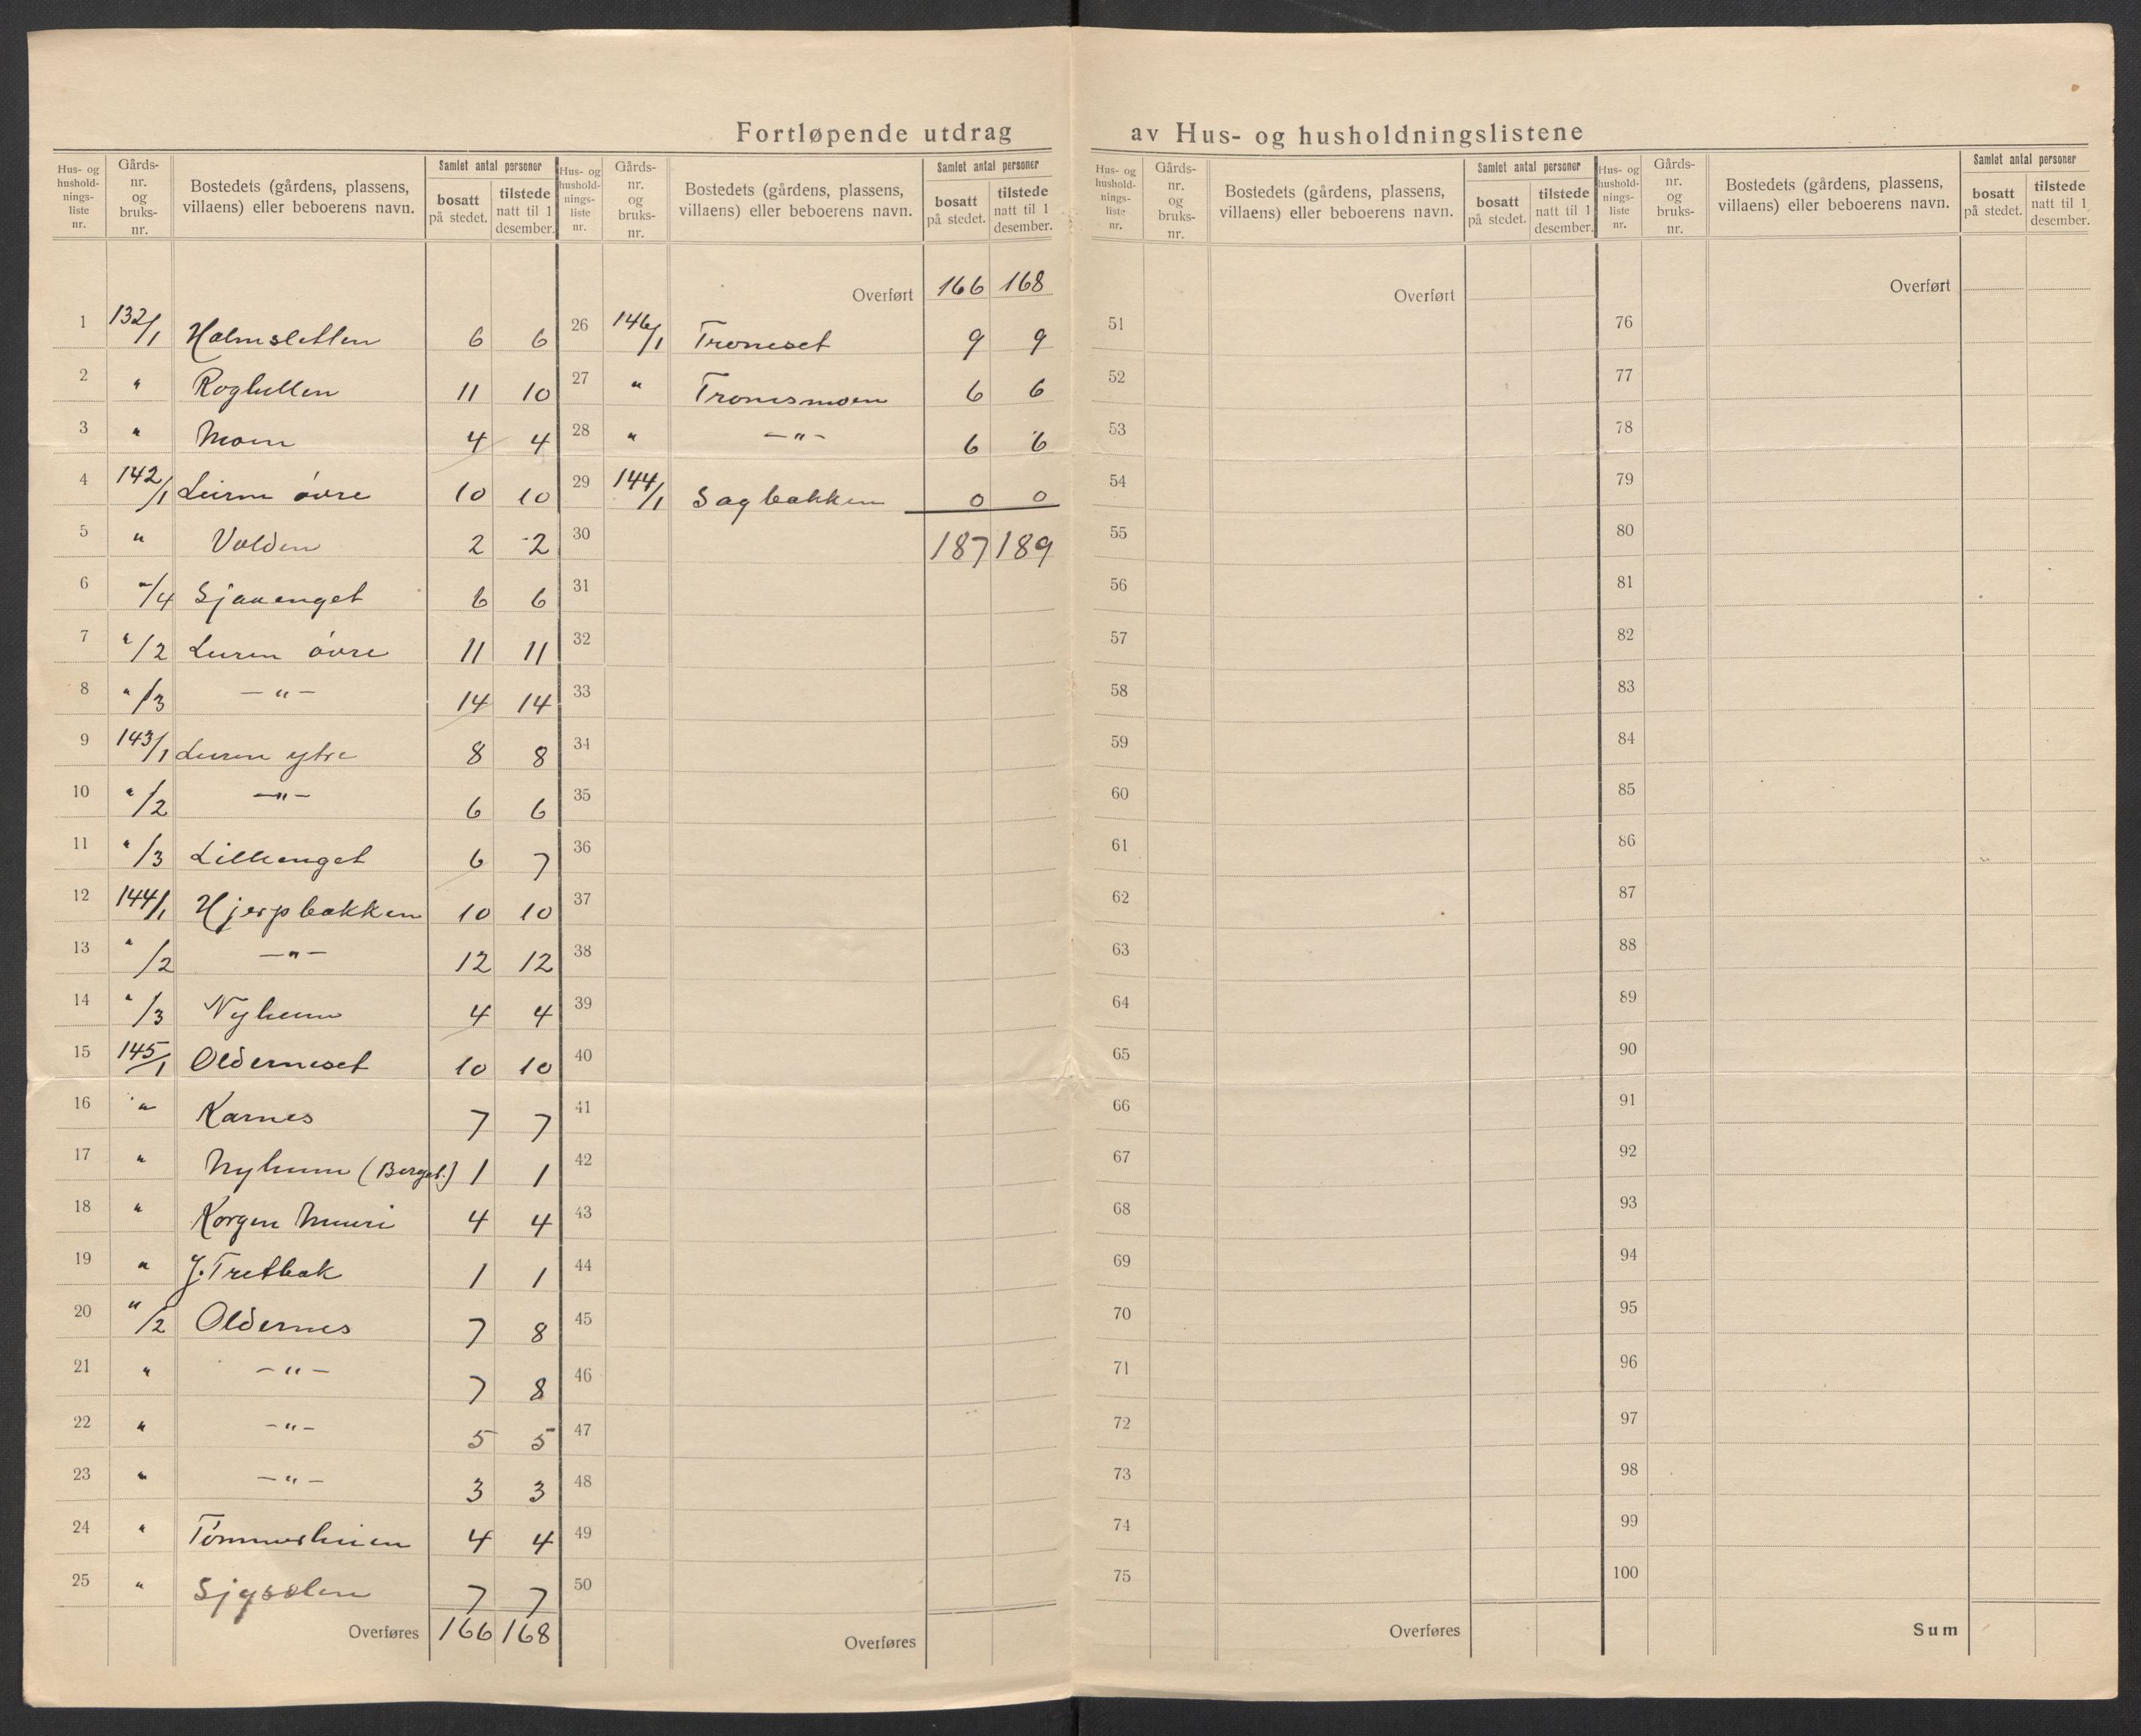 Fortløpende utdrag av Hus- og husholdningslistene
Hus- og hushold-nings-liste nr. Gårds-nr. og bruks-nr. Bostedets (gårdens, plassens, villaens) eller beboerens navn. Samlet antal personer bosatt på stedet. tilstede natt til 1 desember.
1 132/1 Holmsletten 6 6
2 " Roghellen 11 10
3 " Moen 4 4
4 142/1 Leiren övre 10 10
5 " Volden 2 2
6 "/4 Sjåvenget 6 6
7 "/2 Leiren övre 11 11
8 "/3 —"— 14 14
9 143/1 Leiren ytre 8 8
10 "/2 —"— 6 6
11 "/3 Lilleenget 6 7
12 144/1 Hjerpbakken 10 10
13 "/2 —"— 12 12
14 "/3 Nyheim 4 4
15 145/1 Olderneset 10 10
16 " Karnes 7 7
17 " Nyheim (Berget.) 1 1
18 " Korgen 4 4
19 " J. Tretbak 1 1
20 "/2 Oldernes 7 8
21 " —"— 7 8
22 " —"— 5 5
23 " —"— 3 3
24 " Tömmerheien 4 4
25 " 7 7
Overføres 166 168
Hus- og hushold-nings-liste nr. Gårds-nr. og bruks-nr. Bostedets (gårdens, plassens, villaens) eller beboerens navn. Samlet antal personer bosatt på stedet. tilstede natt til 1 desember.
Overført 166 168
26 146/1 Troneset 9 9
27 " Tronesmoen 6 6
28 " —"— 6 6
29 144/1 Sagbakken 0 0
30 187 189
31
32
33
34
35
36
37
38
39
40
41
42
43
44
45
46
47
48
49
50
Overføres
Hus- og hushold-nings-liste nr. Gårds-nr. og bruks-nr. Bostedets (gårdens, plassens, villaens) eller beboerens navn. Samlet antal personer bosatt på stedet. tilstede natt til 1 desember.
Overført
51
52
53
54
55
56
57
58
59
60
61
62
63
64
65
66
67
68
69
70
71
72
73
74
75
Overføres
Hus- og hushold-nings-liste nr. Gårds-nr. og bruks-nr. Bostedets (gårdens, plassens, villaens) eller beboerens navn. Samlet antal personer bosatt på stedet. tilstede natt til 1 desember.
Overført
76
77
78
79
80
81
82
83
84
85
86
87
88
89
90
91
92
93
94
95
96
97
98
99
100
Sum